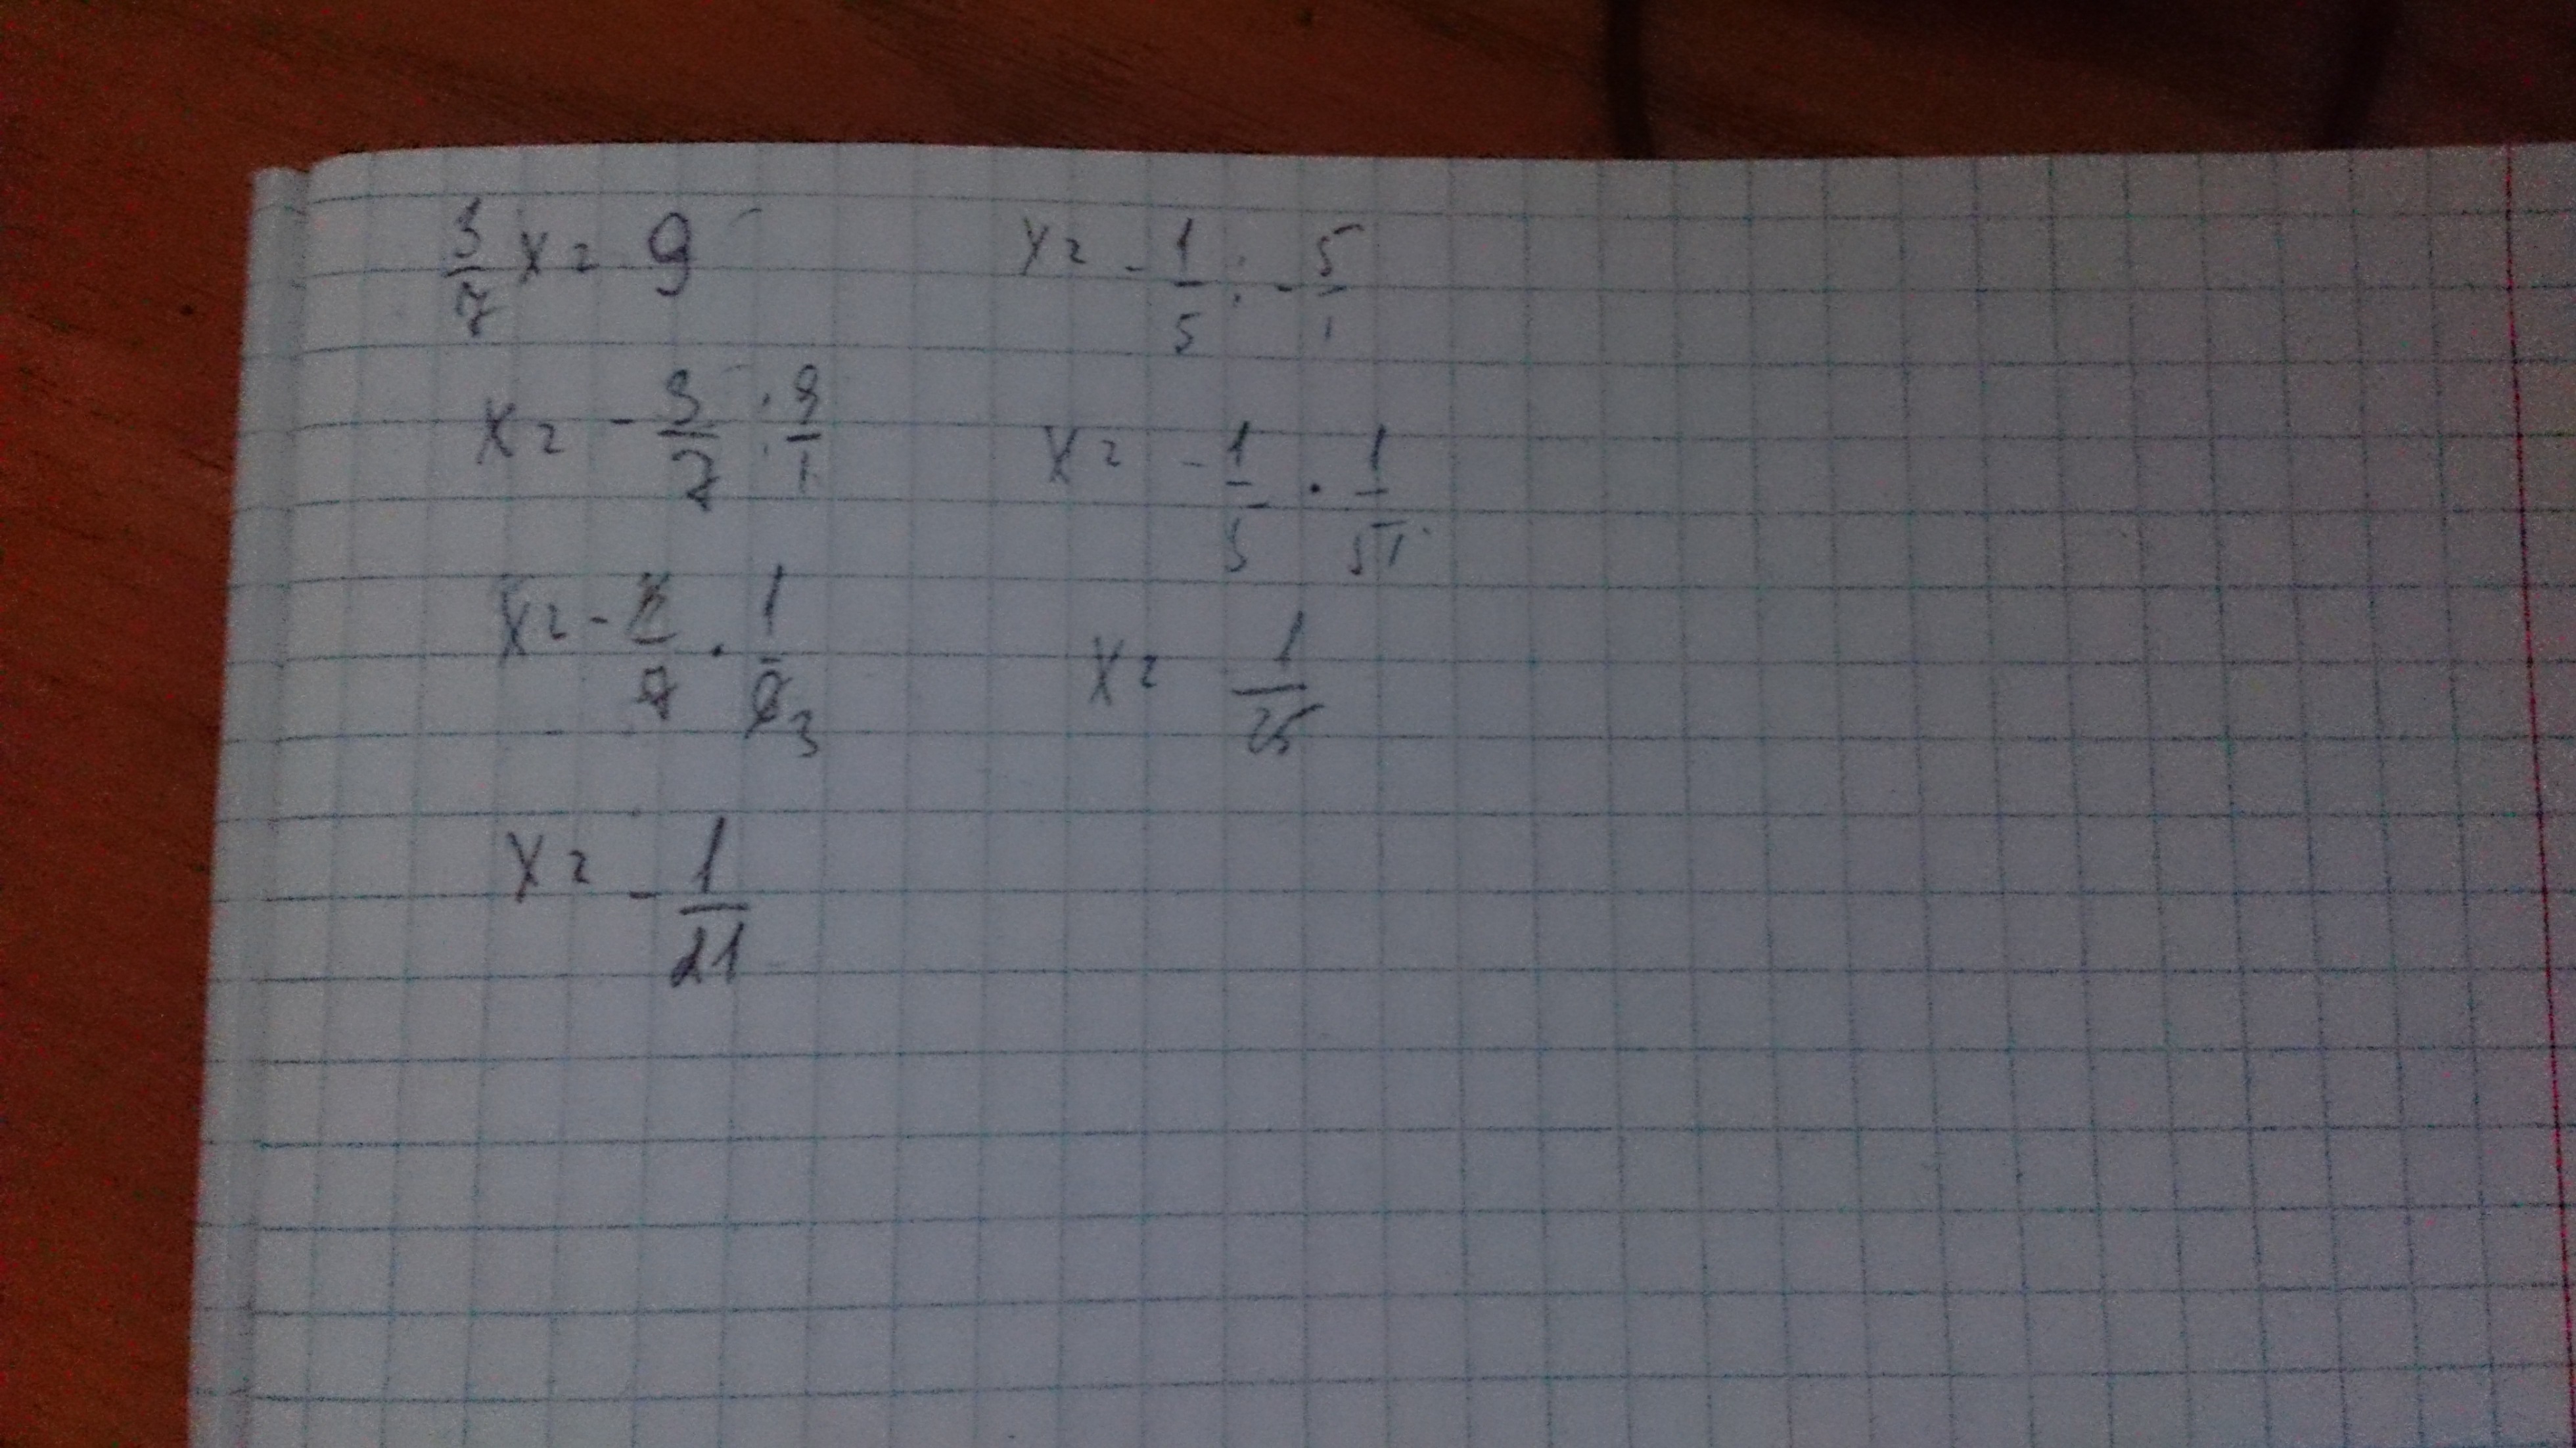 3/7 x = 9
x = - 3/7 : 9/1
x = - 3/7 · 1/9 3
x = - 1/21
x = - 1/5 : - 5/1
x = - 1/5 · 1/5
x = 1/25